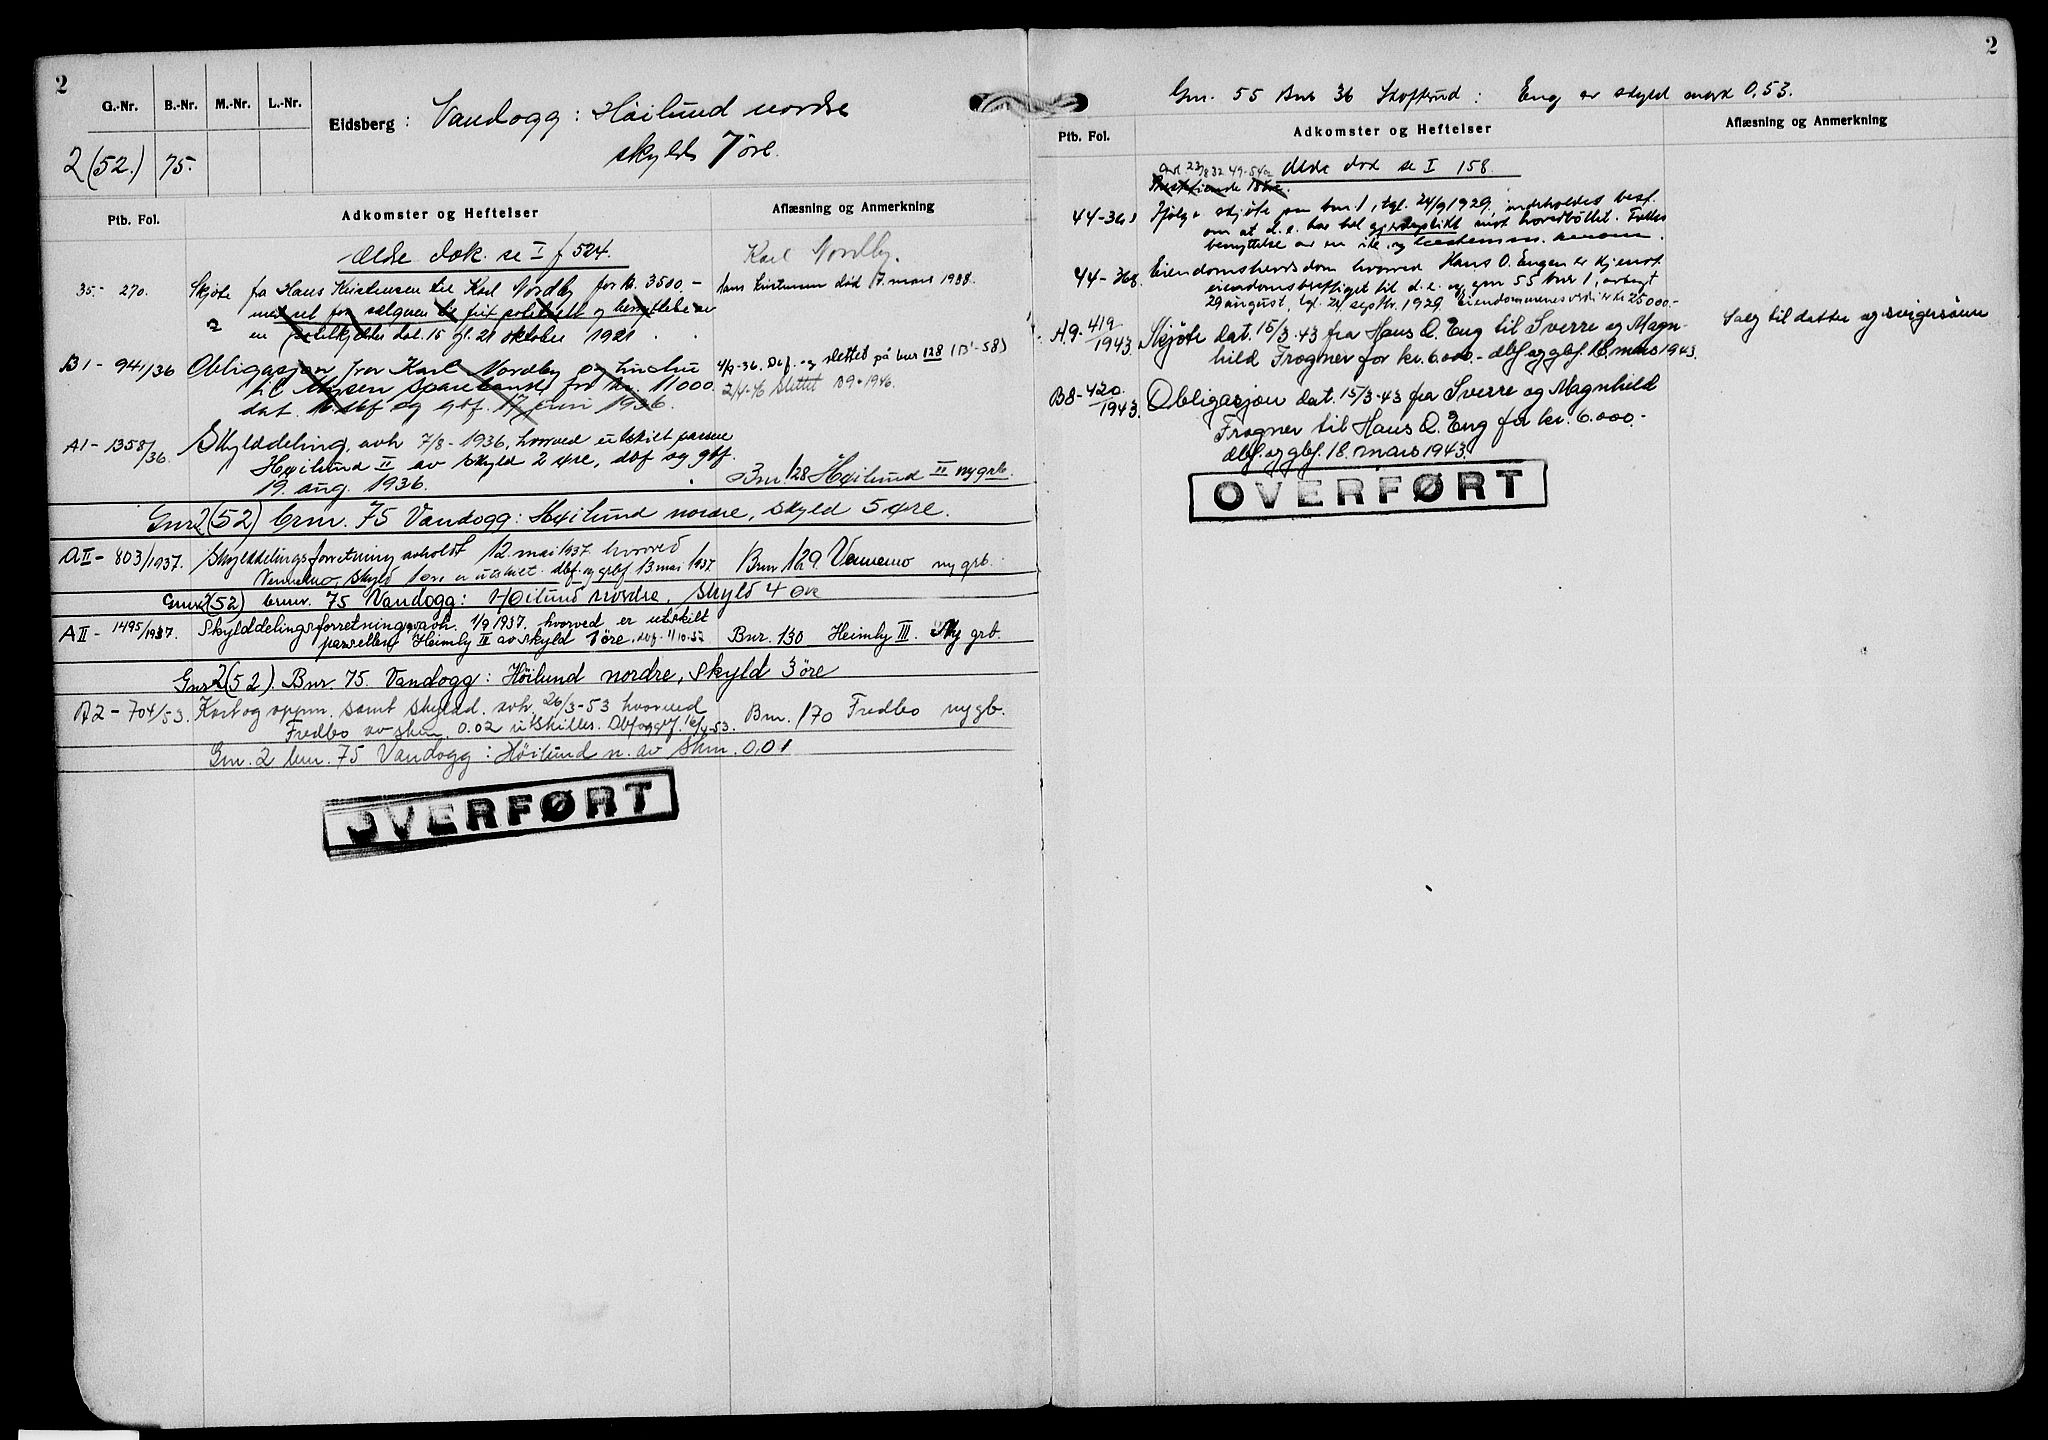 2
G.-Nr. B.-Nr. M.-Nr. L.-Nr.
2 (52.) 75.
Eidsberg: Vandogg: Høilund nordre
skyld 7 øre.
Ptb. Fol. Adkomster og Heftelser Aflæsning og Anmerkning
Ældre dok. se I f 524. Karl Nordby.
35.- 270. Skjøte fra Hans Kristensen til Karl Nordby for kr. 3500.- Hans Kristensen død 17. mars 1938.
med ret for sælgeren til frit og benyttelse av
en dat. 15 gl. 21 oktober 1921
B1 - 941/36 Obligasjon fra Karl Nordby og hustru 4/9-36. Def. og slettet på bnr 128 (B1-58)
til Mysen Sparebank for kr. 11000 2/4-46 Slettet B9-1946.
dat. dbf og gbf. 17 juni 1936.
A1 - 1358/36. Skylddeling avh 7/8-1936, hvorved utskilt parsell
Høilund II av skyld 2 øre, dbf og gbf.
19. aug. 1936. Bnr. 128 Høilund II ny grb.
Gnr 2(52) bnr. 75 Vandogg: Høilund nordre, skyld 5 øre.
AII - 803/1937. Skylddelingsforretning avholdt 12. mai 1937. hvorved Bnr 129. Vennemo ny grb.
Vennemo, skyld 1 øre er utskilt. dbf. og grbf 13 mai 1937
Gnr 2(52) bnr. 75 Vandogg: Høilund nordre, skyld 4 øre
AII - 1495/1937. Skylddelingsforretning avh. 1/9 1937. hvorved er utskilt
parsellen Heimly III av skyld 1 øre. Bnr. 130 Heimly III. Ny grb.
Gnr 2(52). Bnr. 75. Vandogg: Höilund nordre, skyld 3 öre
A2 - 704/53. Kart og oppm. samt skyldd. avh. 26/3-53 hvorved Bnr. 170 Fredbo ny gb.
Fredbo av skm. 0.02 utskilles. Dbf og gbf. 16/4-53.
Gnr. 2 bnr. 75 Vandogg: Höilund n. av skm. 0.01
OVERFØRT
2
Gnr. 55 Bnr 36 Skofterud: Eng av skyld mark 0,53.
Ptb. Fol. Adkomster og Heftelser Aflæsning og Anmerkning
Ældre dok se I 158.
44-361 Ifølge skjøte paa bnr. 1, tgl. 24/9 1929, indeholdes best.
om at d. e. har hel gjerdeplikt mot hovedbølet. Felles
benyttelse av en
44-368. Eiendomshevdsdom hvorved Hans O. Engen er kjendt
eiendomsberettiget til d. e. og gnr 55 bnr 1, avsagt
29 august, tgl. 24 septbr. 1929. Eiendommenes verdi er kr 25000.-
A.9- 419/1943. Skjøte dat. 15/3-43 fra Hans O. Eng til Sverre og Magn- Salg til datter og svigersønn
hild Frogner for kr. 6.000.- dbf og gbf. 18. mars 1943.
B8- 420/1943. Obligasjon dat. 15/3-43 fra Sverre og Magnhild
Frogner til Hans O. Eng for kr. 6.000.-
dbf. og gbf. 18. mars 1943.
OVERFØRT